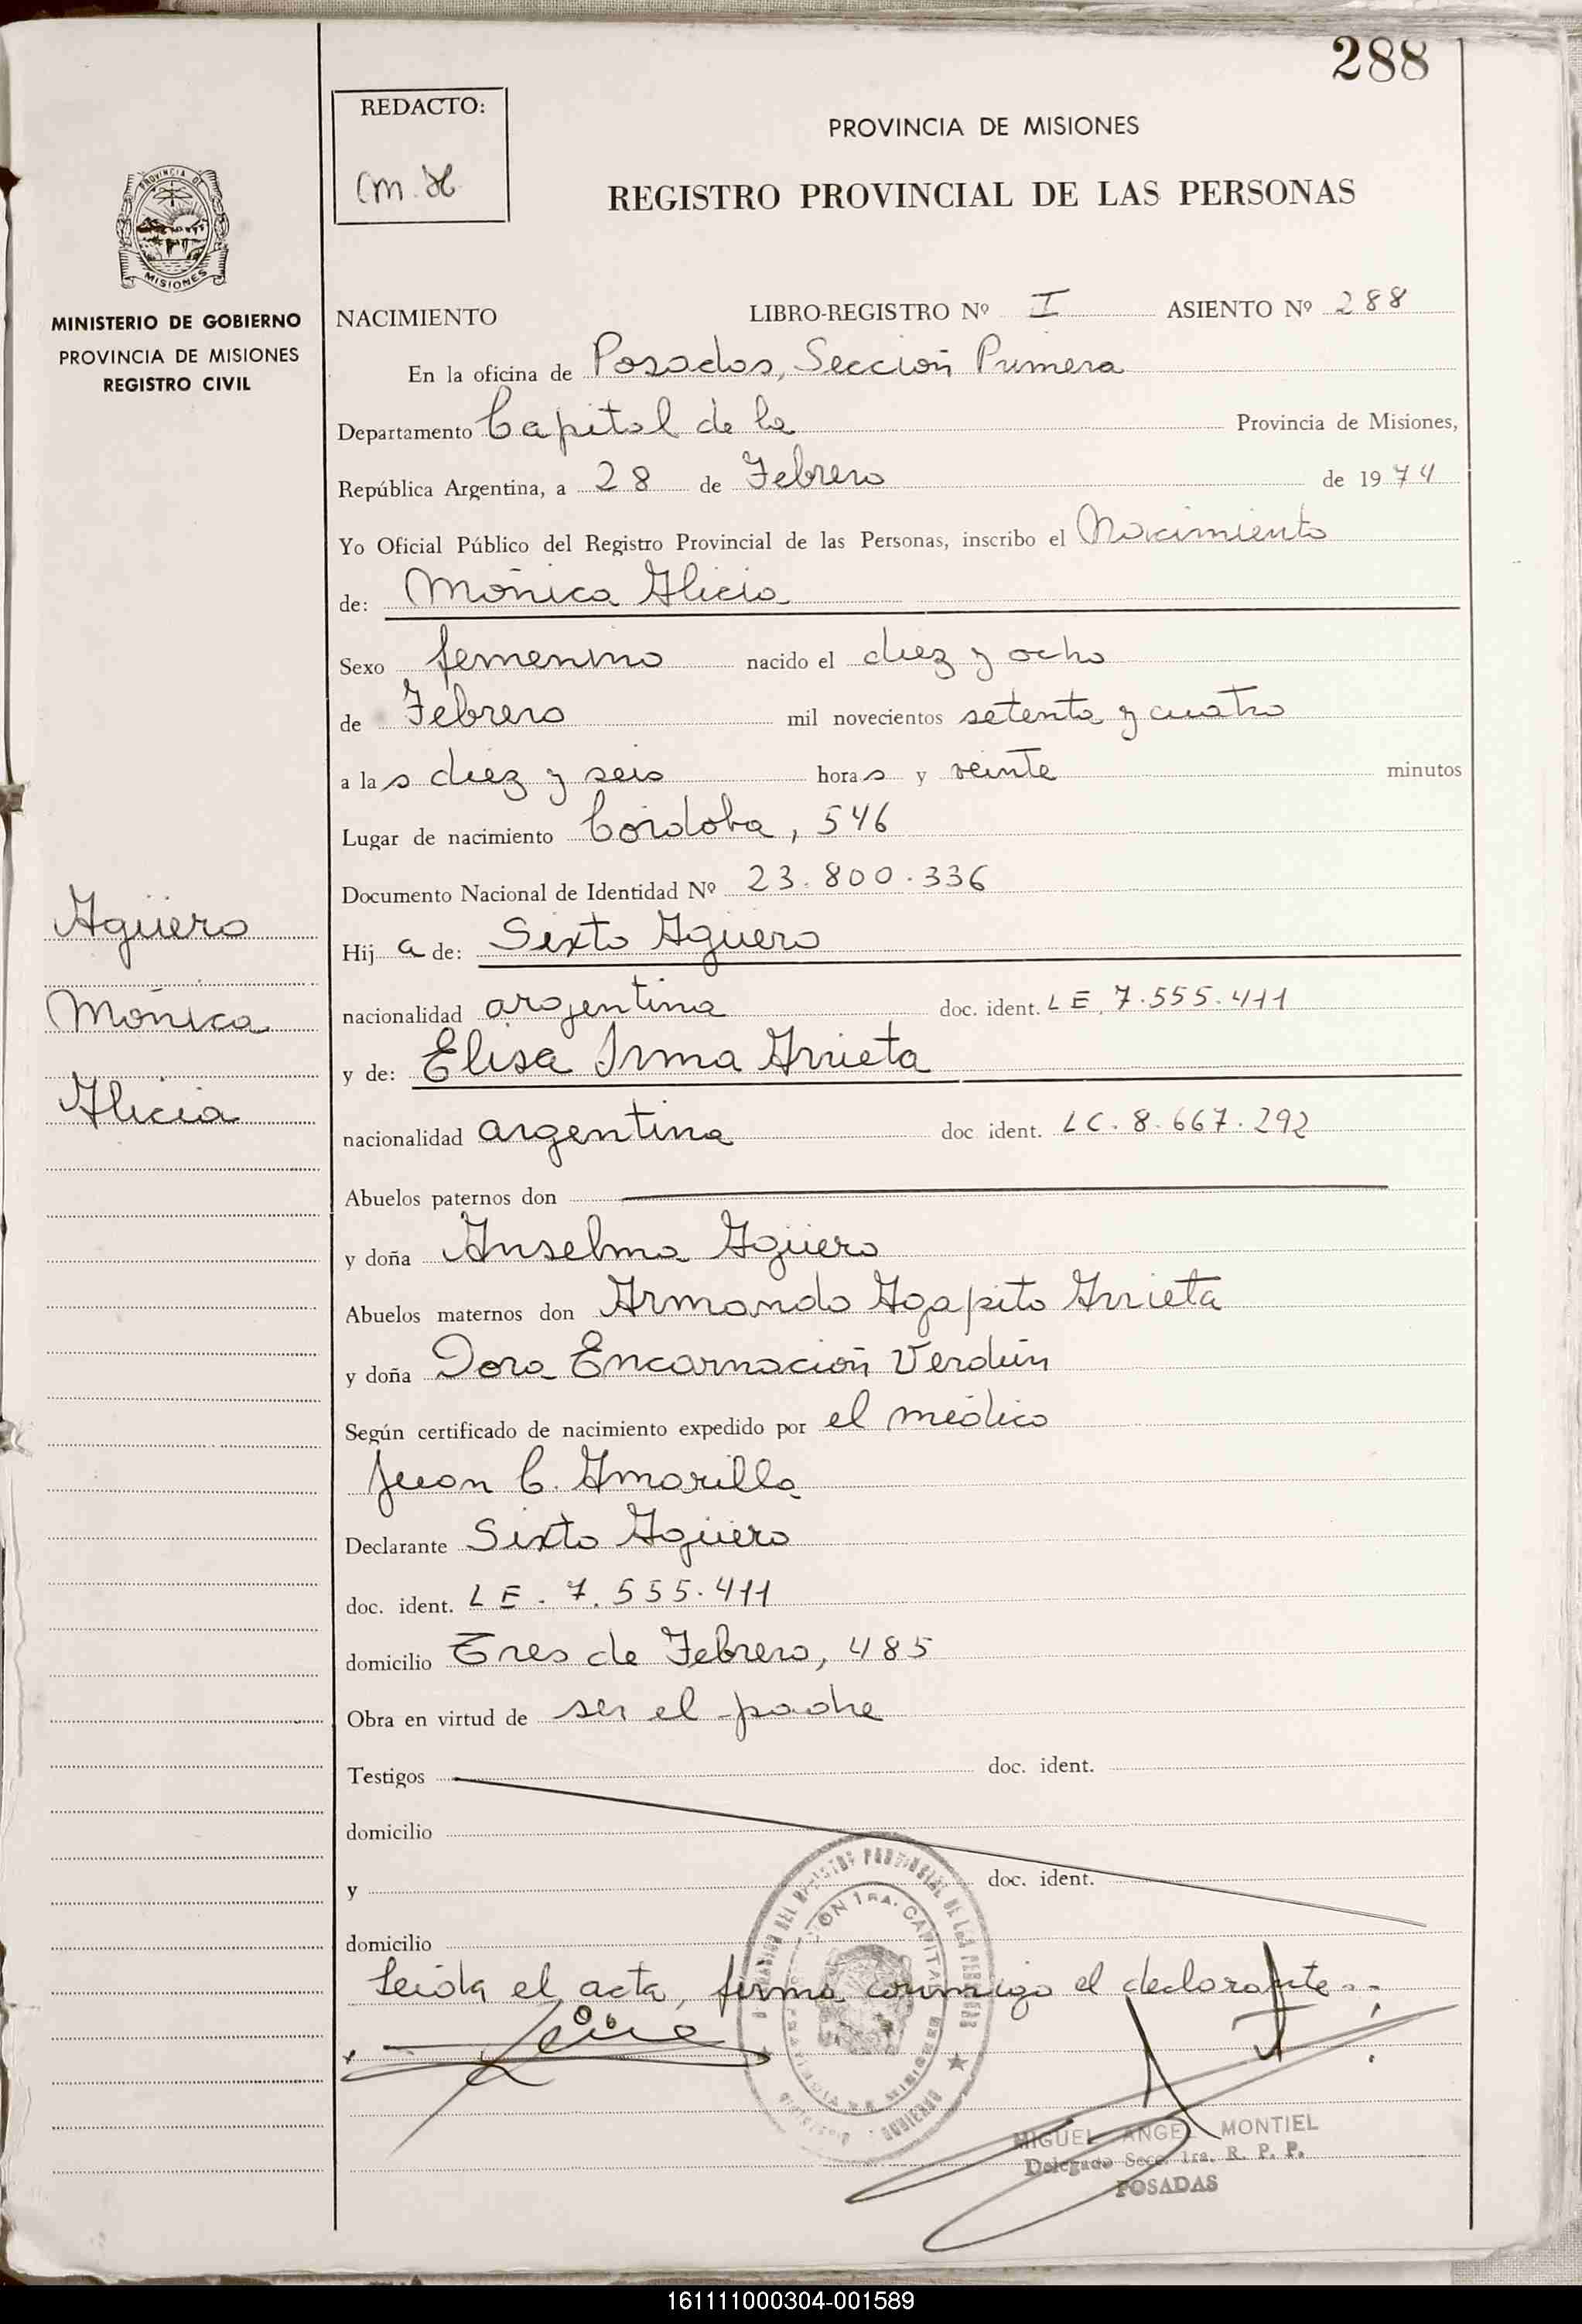 288
REDACTO:
PROVINCIA DE MISIONES
REGISTRO PROVINCIAL DE LAS PERSONAS
PROVINCIA DE
MISIONES
MINISTERIO DE GOBIERNO
PROVINCIA DE MISIONES
REGISTRO CIVIL
NACIMIENTO LIBRO-REGISTRO Nº I ASIENTO Nº 288
En la oficina de Posadas, Sección Primera
Departamento Capital de la Provincia de Misiones,
República Argentina, a 28 de Febrero de 1974
Yo Oficial Público del Registro Provincial de las Personas, inscribo el Nacimiento
de: Mónica Alicia
Sexo femenino nacido el diez y ocho
de Febrero mil novecientos setenta y cuatro
a las diez y seis horas y veinte minutos
Lugar de nacimiento Córdoba, 546
Documento Nacional de Identidad Nº 23.800.336
Agüero
Hija de: Sixto Agüero
Mónica
nacionalidad argentina doc. ident. LE. 7.555.411
y de: Elisa Irma Arrieta
Alicia
nacionalidad argentina doc ident. LC. 8.667.292
Abuelos paternos don
y doña Anselma Agüero
Abuelos maternos don Armando Agapito Arrieta
y doña Dora Encarnación Verdún
Según certificado de nacimiento expedido por el médico
Juan C. Amarilla
Declarante Sixto Agüero
doc. ident. LE. 7.555.411
domicilio Tres de Febrero, 485
Obra en virtud de ser el padre
Testigos doc. ident.
domicilio
y doc. ident.
domicilio
Leída el acta, firma conmigo el declarante.-
MIGUEL ANGEL MONTIEL
Delegado Secc. 1ra. R. P. P.
POSADAS
161111000304-001589